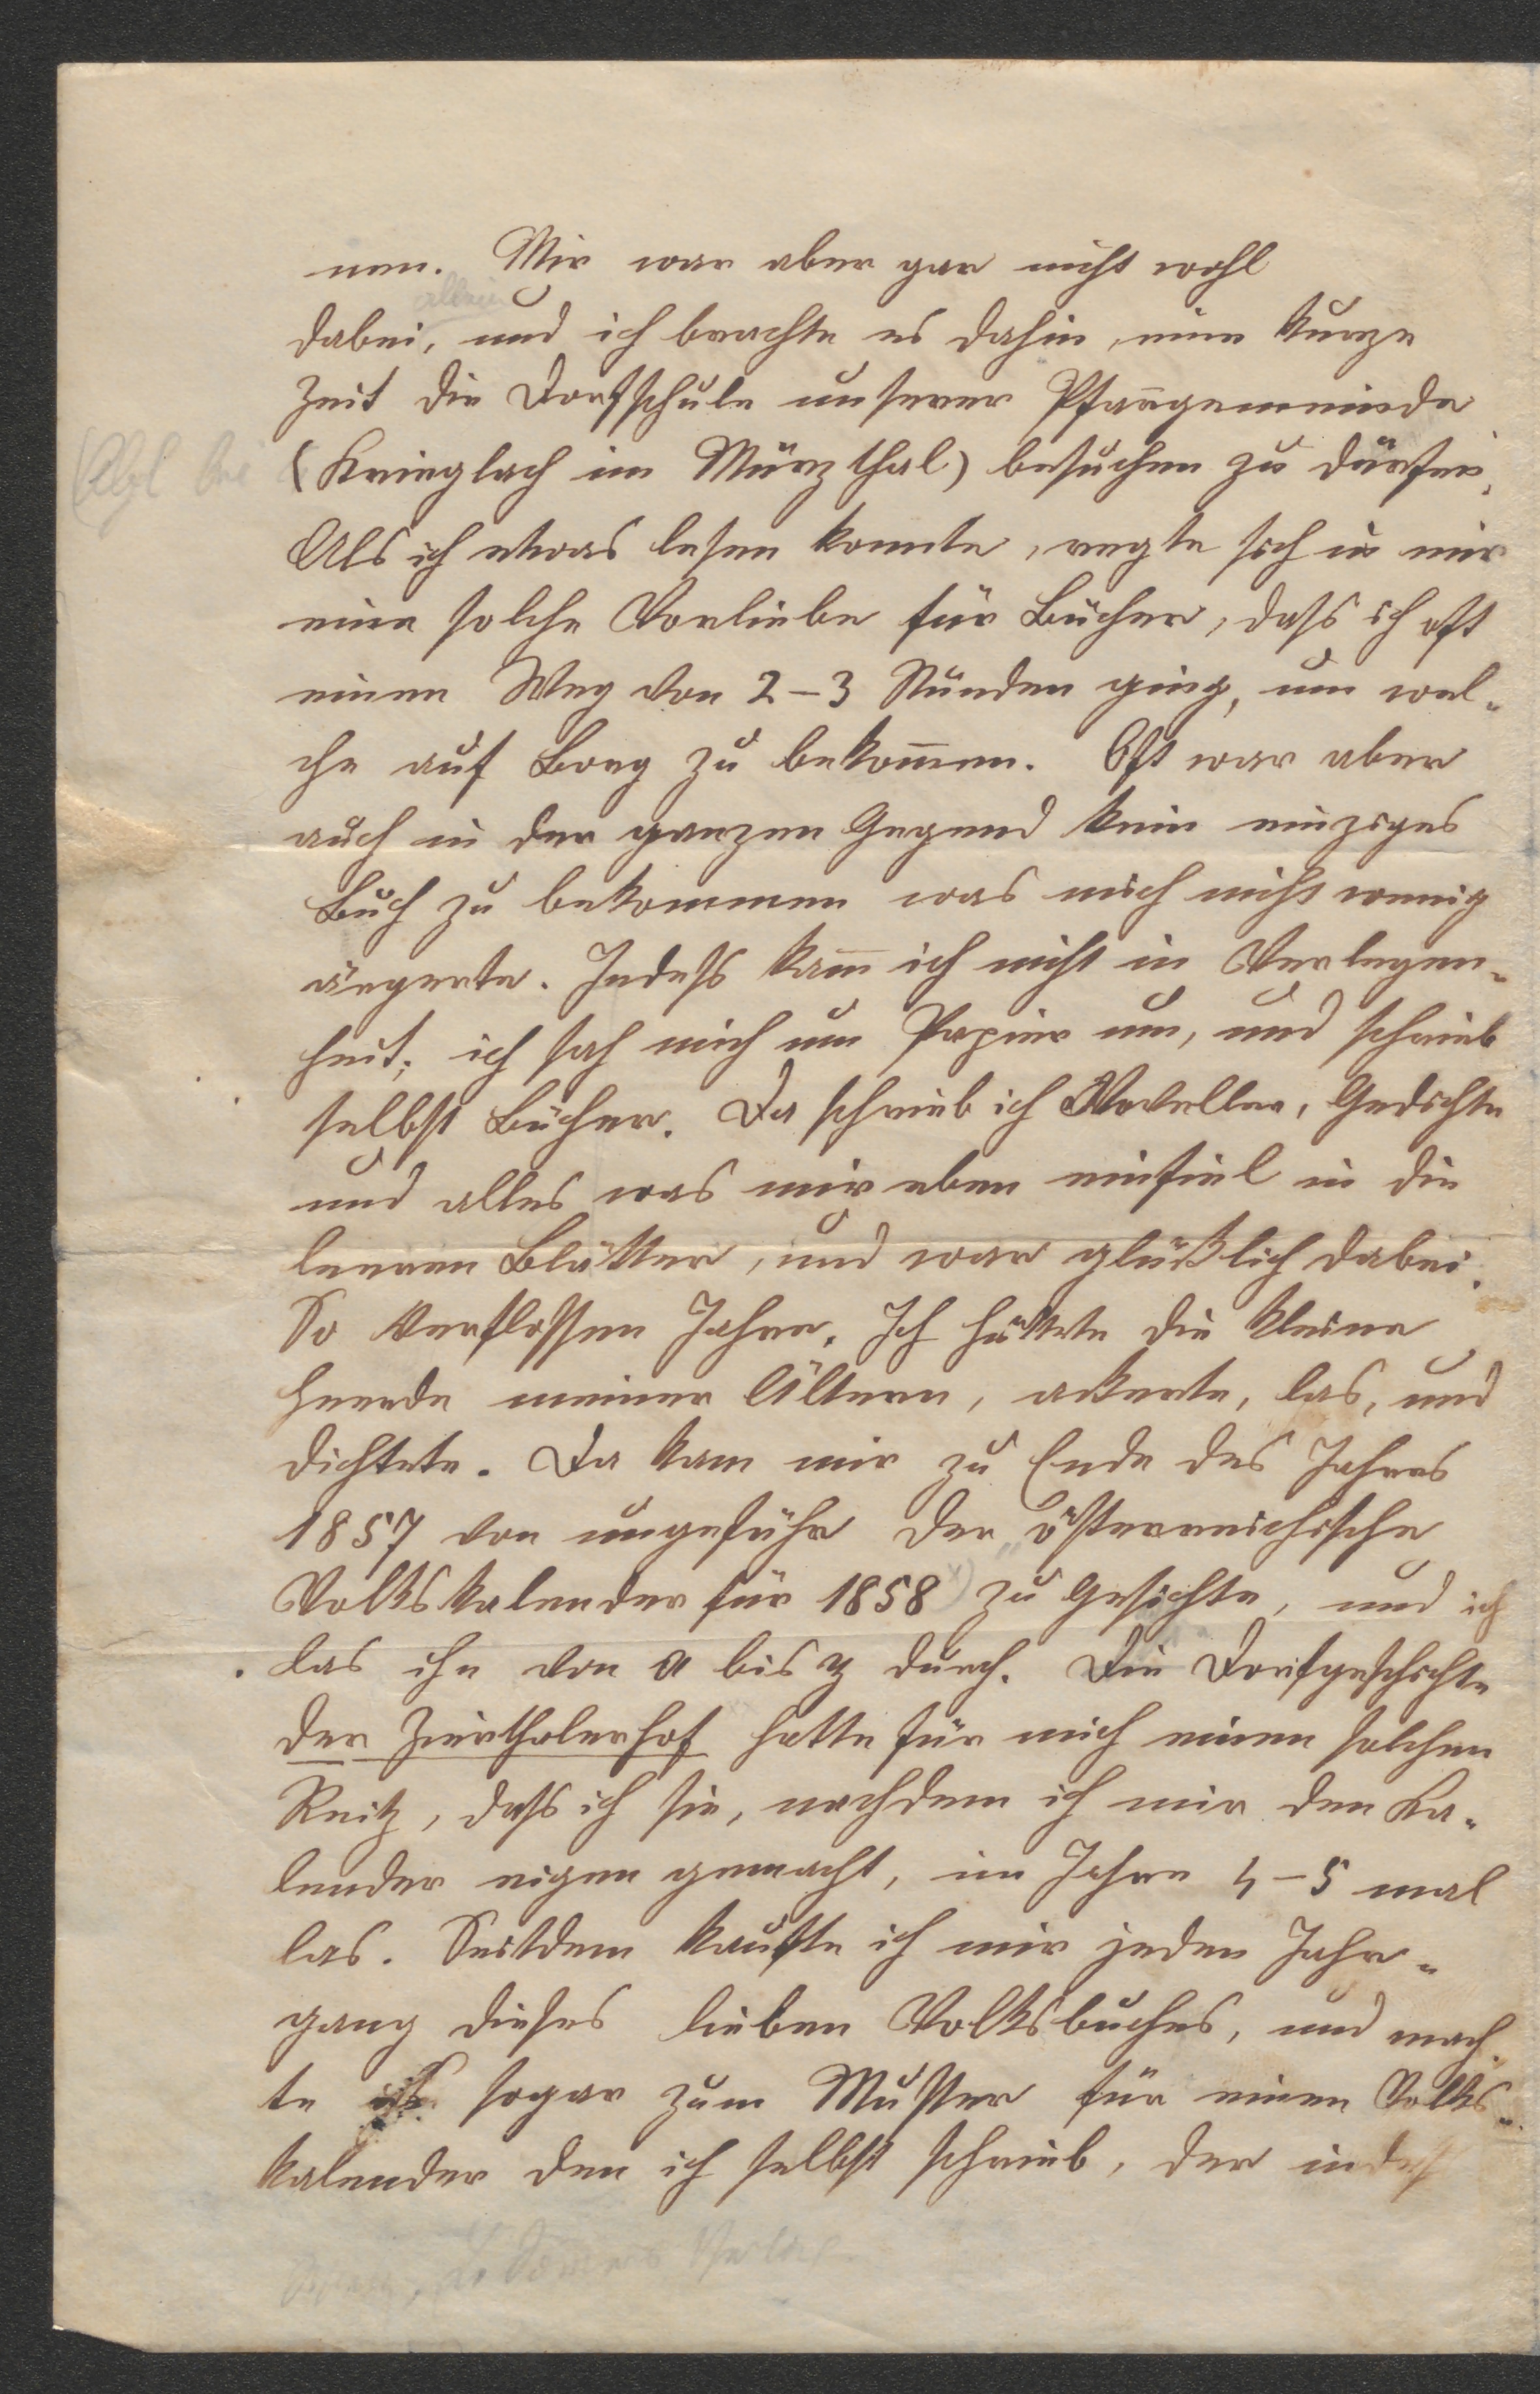 nen. Mir war aber gar nicht wohl
allein
dabei, und ich brachte es dahin, eine kurze
Zeit die Dorfschule unserer Pfarrgemeinde
(Krieglach im Mürzthal) besuchen zu dürfen.
Als ich etwas lesen konnte, regte sich in mir
eine solche Vorliebe für Bücher, dass ich oft
einen Weg von 2–3 Stunden ging, um wel-
che auf Borg zu bekom̅en. Oft war aber
auch in der ganzen Gegend kein einziges
Buch zu bekommen was mich nicht wenig
ärgerte. Indess kam̅ ich nicht in Verlegen-
heit; ich sah mich um Papier um, und schrieb
selbst Bücher. Da schrieb ich Novellen, Gedichte
und alles was mir eben einfiel in die
leeren Blätter, und war glücklich dabei.
So verflossen Jahre. Ich hüttete die kleine
Heerde meiner Ältern, ackerte, las, und
dichtete. Da kam mir zu Ende des Jahres
1857 von ungefähr der „österreichische
Volkskalender für 1858 x) zu Gesichte, und ich
las ihn von a bis z durch. Die Dorfgeschichte
der Zierthalerhof hatte für mich einen solchen
Reitz, dass ich sie, nachdem ich mir den Ka-
lender eigen gemacht, im Jahre 4–5 mal
las. Seitdem kaufte ich mir jeden Jahr-
gang dieses lieben Volksbuches, und mach-
te sogar zum Muster für einen Volks-
kalender den ich selbst schrieb, der indess